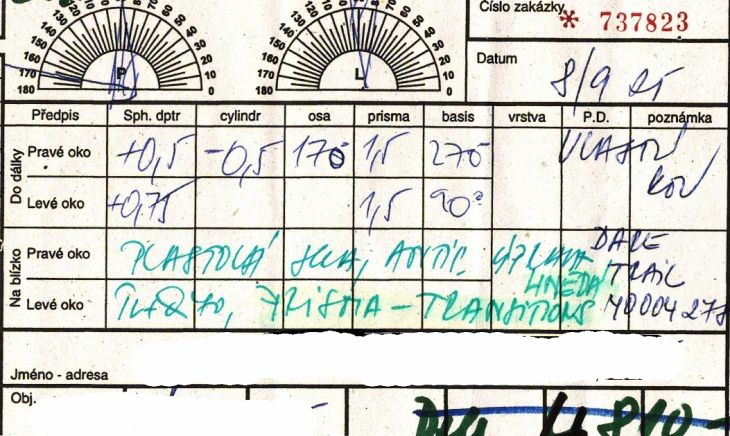 Číslo zakázky * 737823
180 170 160 150 140 130 120 60 50 40 30 20 10 0
P
180 170 160 150 140 130 120 60 50 40 30 20 10 0
L
Datum 8/9
Předpis Sph. dptr cylindr osa prisma basis vrstva P.D. poznámka
Do dálky
Pravé oko +0,5 -0,5 170 1,5 270° VLASTNÍ
KOV
Levé oko +0,75 1,5 90°
Na blízko
Pravé oko PLASTOVÁ SKLA, ANTIR. ÚPRAVA DARE
HNĚDÁ TRAIL
Levé oko PRISMA - TRANSITIONS
Jméno - adresa
Obj.